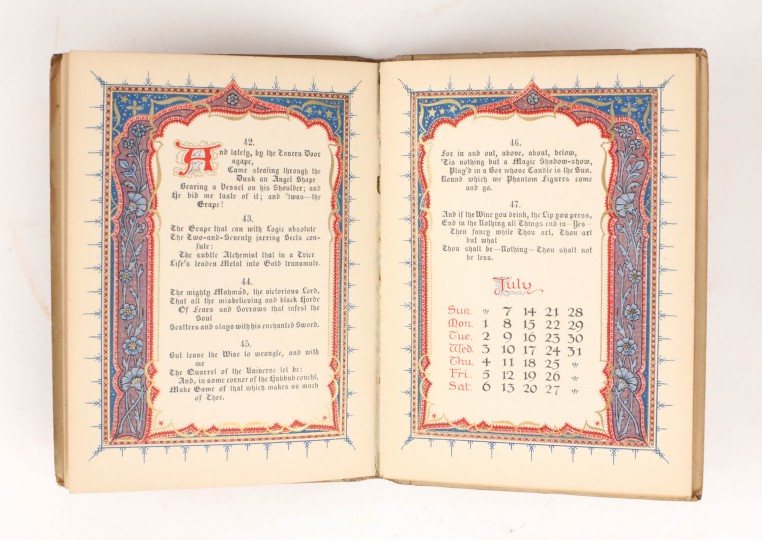 42.
And lately, by the Tavern Door
agape,
Came stealing through the
Dusk an Angel Shape
Bearing a Vessel on his Shoulder; and
He bid me taste of it; and 'twas—the
Grape!
43.
The Grape that can with Logic absolute
The Two-and-Seventy jarring Sects con-
fute:
The subtle Alchemist that in a Trice
Life's leaden Metal into Gold transmute.
44.
The mighty Mahmúd, the victorious Lord,
That all the misbelieving and black Horde
Of Fears and Sorrows that infest the
Soul
Scatters and slays with his enchanted Sword.
45.
But leave the Wise to wrangle, and with
me
The Quarrel of the Universe let be:
And, in some corner of the Hubbub coucht,
Make Game of that which makes as much
of Thee.
46.
For in and out, above, about, below,
'Tis nothing but a Magic Shadow-show,
Play'd in a Box whose Candle is the Sun,
Round which we Phantom Figures come
and go.
47.
And if the Wine you drink, the Lip you press,
End in the Nothing all Things end in—Yes—
Then fancy while Thou art, Thou art
but what
Thou shalt be—Nothing—Thou shalt not
be less.
July
Sun. * 7 14 21 28
Mon. 1 8 15 22 29
Tue. 2 9 16 23 30
Wed. 3 10 17 24 31
Thu. 4 11 18 25 *
Fri. 5 12 19 26 *
Sat. 6 13 20 27 *